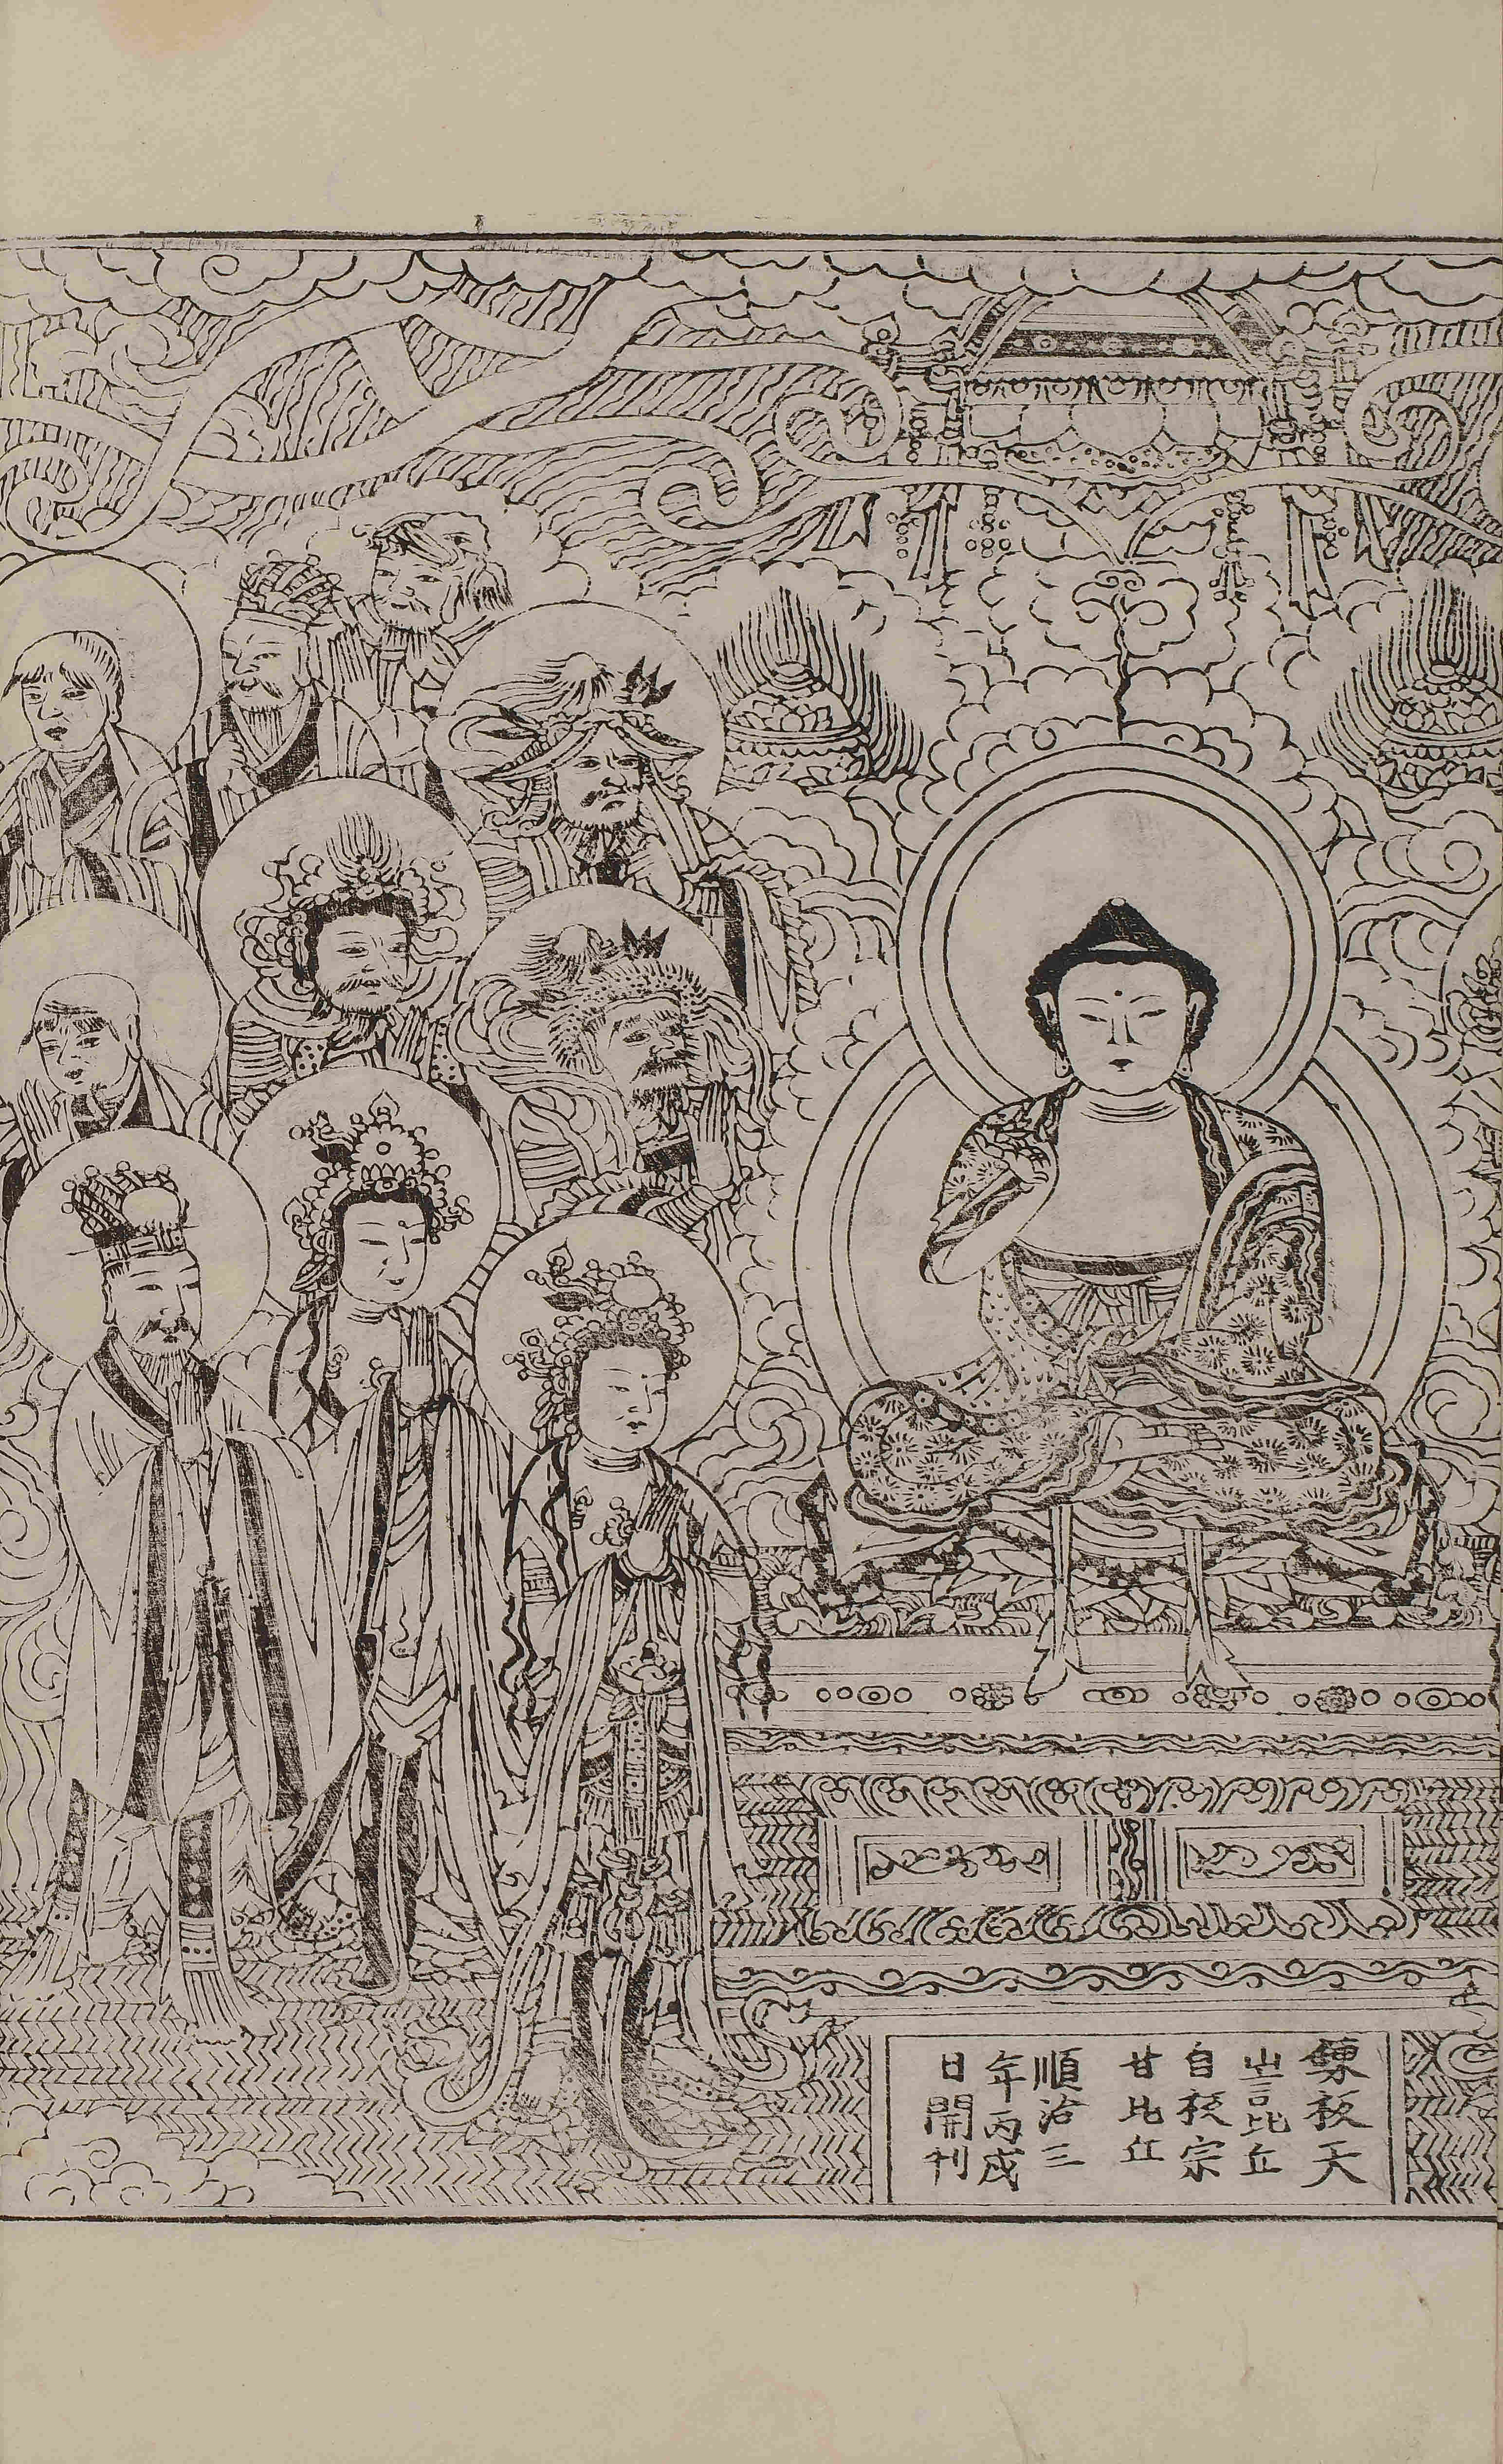 鍊板天
訔比丘
自板宗
甘比丘
順治三
年丙戌
日開刊